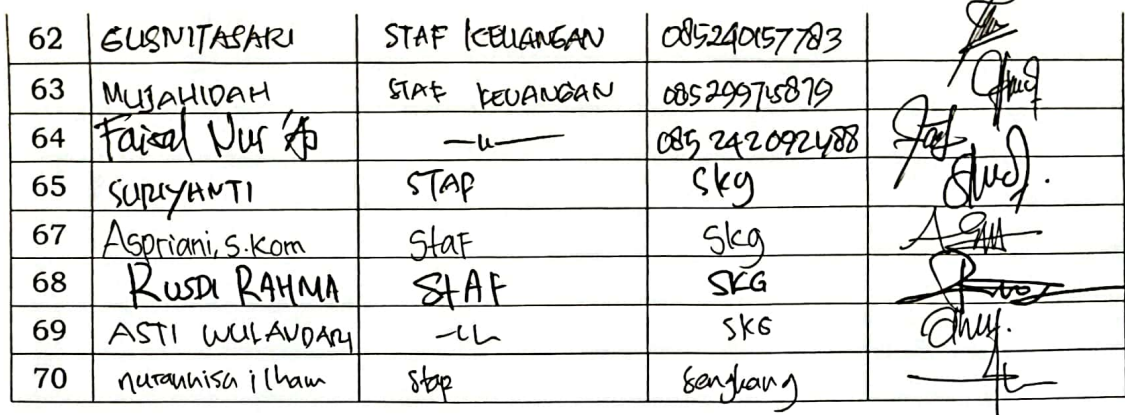 62 GUSNITASARI STAF KEUANGAN 085240157783
63 MUJAHIDAH STAF KEUANGAN 085299715879
64 Faisal Nur —u— 085242092488
65 SURIYANTI STAF Skg
67 Aspriani, S.Kom Staf Skg
68 RUSDI RAHMA STAF SKG
69 ASTI WULANDARI —u— SKG
70 nurannisa ilham Stap Sengkang